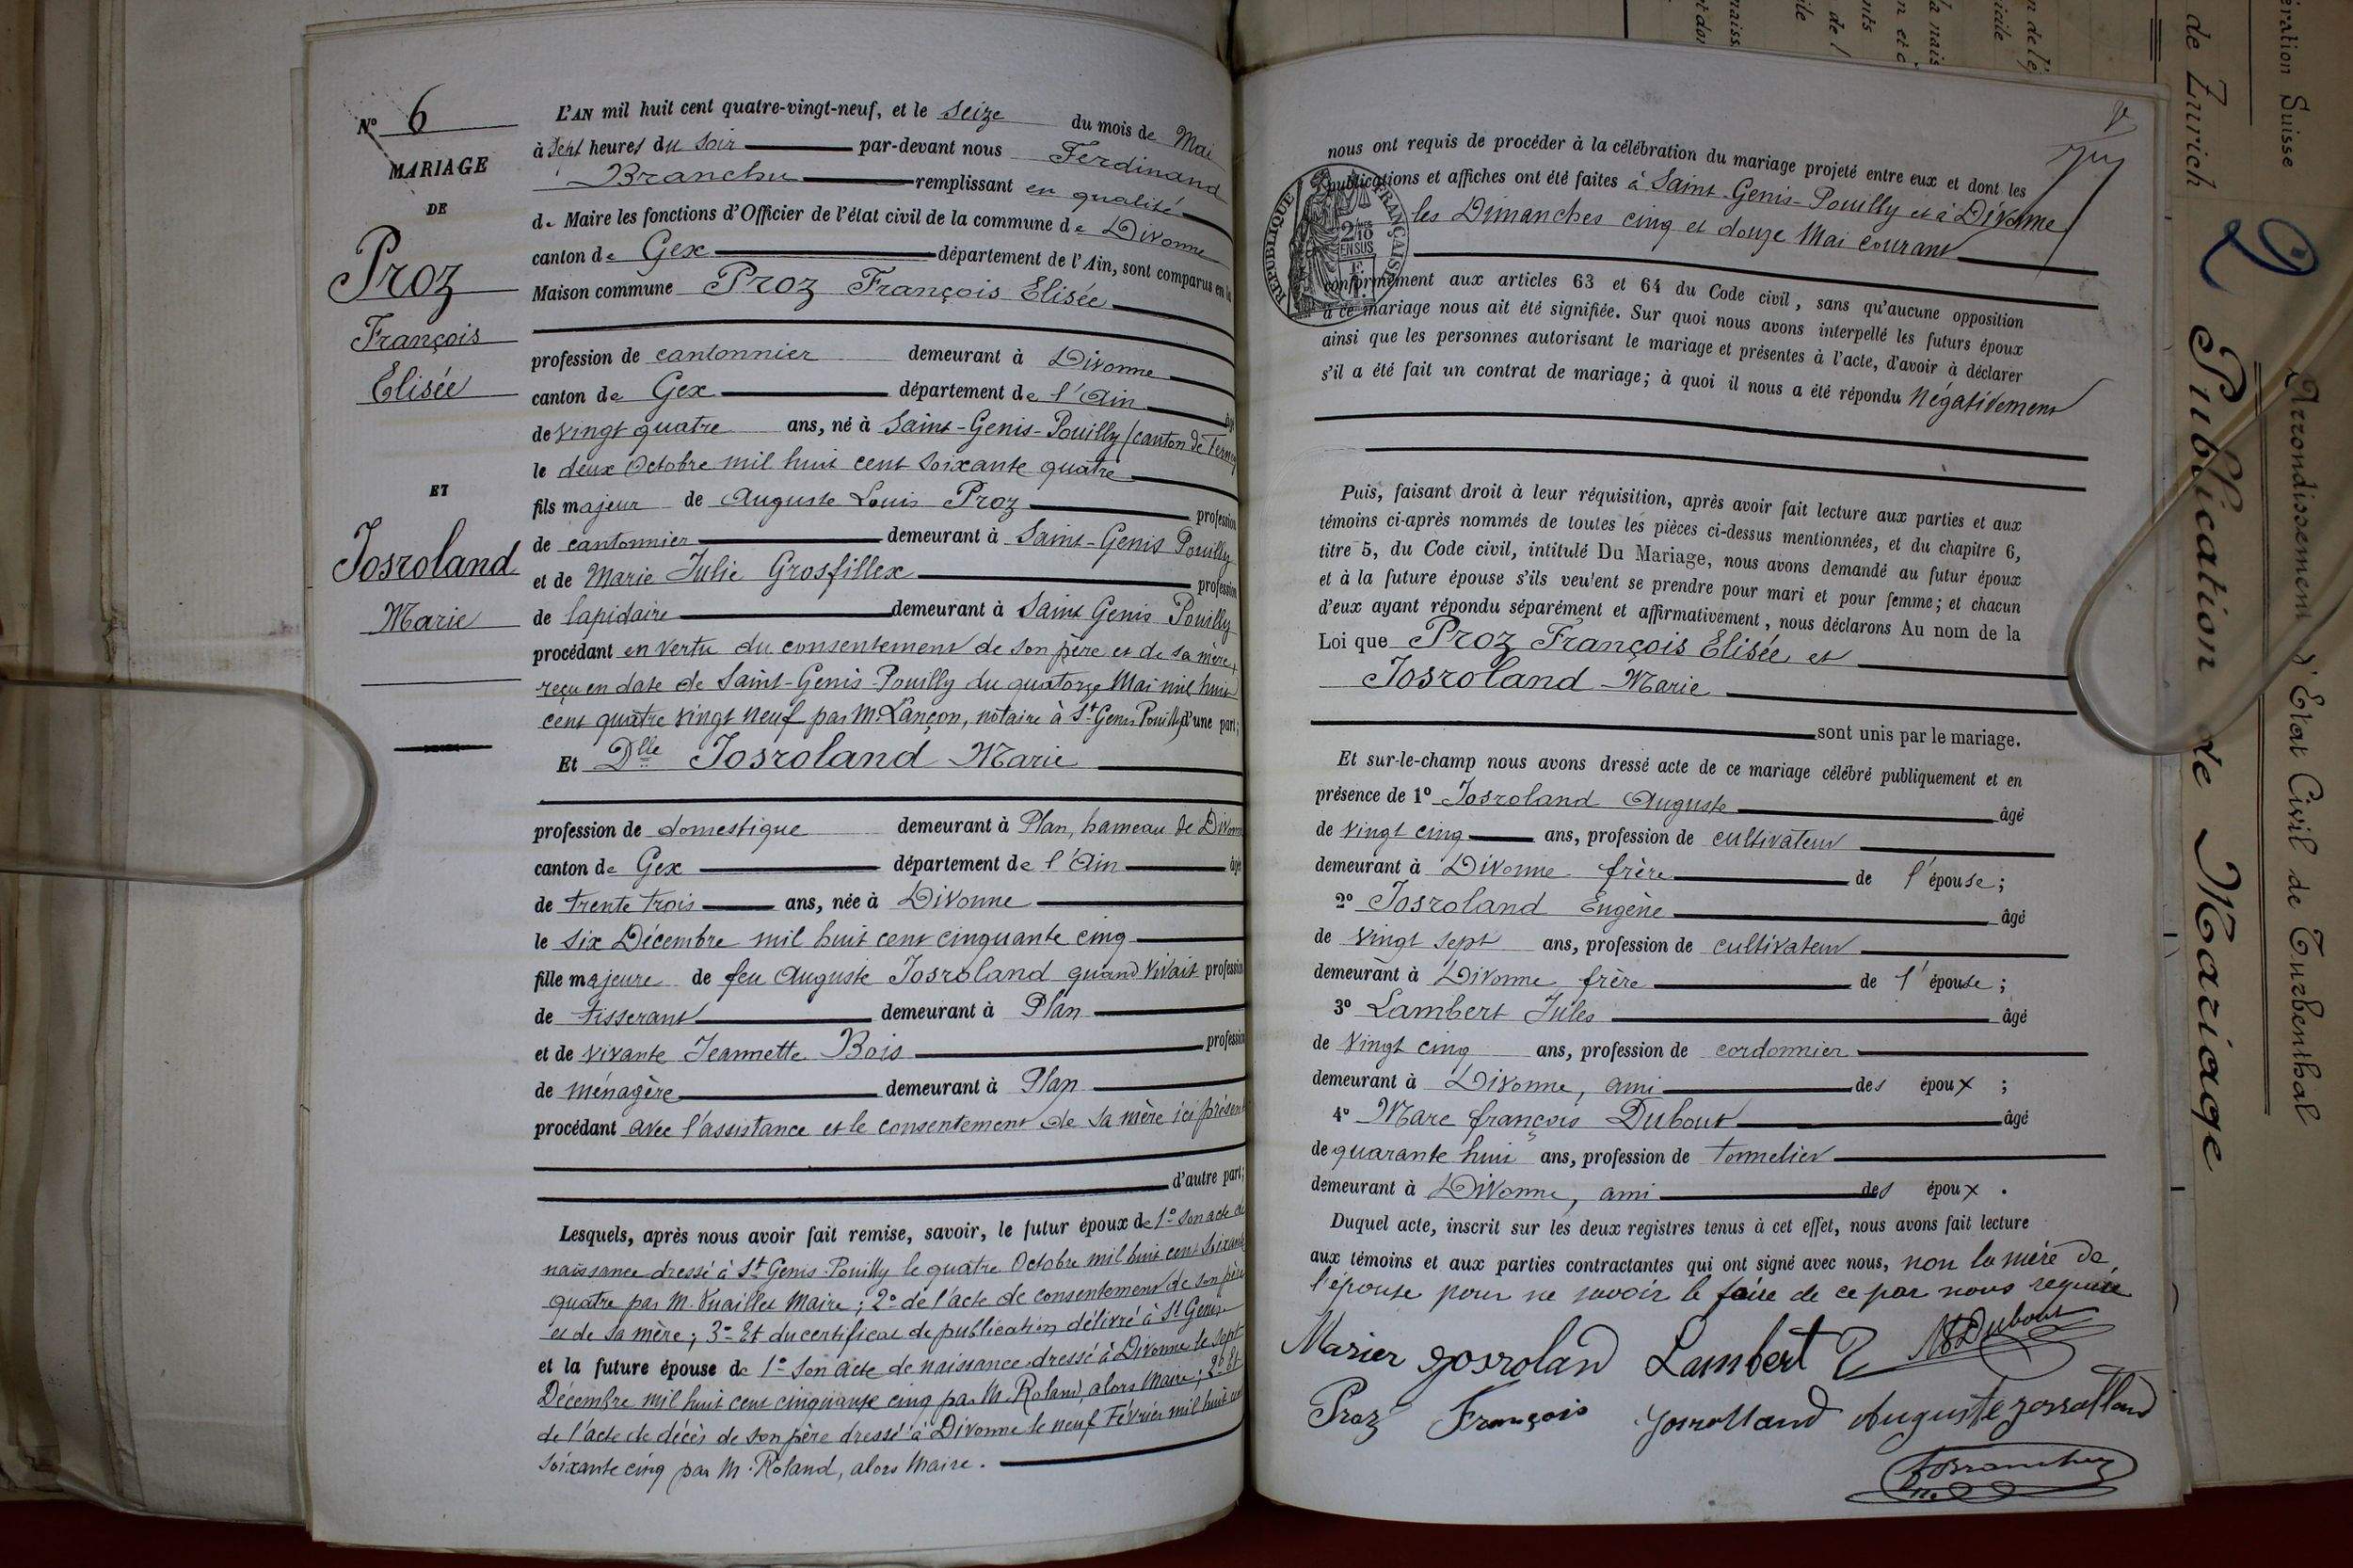 Nº 6
MARIAGE
DE
Proz
François
Elisée
ET
Josroland
Marie
L'AN mil huit cent quatre-vingt-neuf, et le seize du mois de Mai
à sept heures du soir par-devant nous Ferdinand
Branchu remplissant en qualité
de Maire les fonctions d'Officier de l'état civil de la commune de Divonne
canton de Gex département de l'Ain, sont comparus en la
Maison commune Proz François Elisée
profession de cantonnier demeurant à Divonne
canton de Gex département de l'Ain âgé
de vingt quatre ans, né à Saint-Genis-Pouilly (canton de Ferney
le deux Octobre mil huit cent soixante quatre
fils majeur de Auguste Louis Proz profession
de cantonnier demeurant à Saint-Genis Pouilly
et de Marie Julie Grosfillex profession
de lapidaire demeurant à Saint Genis Pouilly
procédant en vertu du consentement de son père et de sa mère
reçu en date de Saint-Genis-Pouilly du quatorze Mai mil huit
cent quatre vingt neuf par M. Lançon, notaire à St Genis Pouilly d'une part;
Et Dlle Josroland Marie
profession de domestique demeurant à Plan, hameau de Divonne
canton de Gex département de l'Ain âgé
de trente trois ans, née à Divonne
le six Décembre mil huit cent cinquante cinq
fille majeure de feu Auguste Josroland quand vivait profession
de tisserant demeurant à Plan
et de vivante Jeannette Bois profession
de ménagère demeurant à Plan
procédant avec l'assistance et le consentement de sa mère ici présent
d'autre part;
Lesquels, après nous avoir fait remise, savoir, le futur époux de 1º son acte de
naissance dressé à St Genis-Pouilly le quatre Octobre mil huit cent soixante
quatre par M. Vuaillet Maire; 2º de l'acte de consentement de son père
et de sa mère; 3º Et du certificat de publication délivré à St Genis
et la future épouse de 1º son acte de naissance dressé à Divonne le sept
Décembre mil huit cent cinquante cinq par M. Roland, alors Maire; 2º Et
de l'acte de décès de son père dressé à Divonne le neuf Février mil huit cent
soixante cinq par M. Roland, alors Maire.
nous ont requis de procéder à la célébration du mariage projeté entre eux et dont les
publications et affiches ont été faites à Saint-Genis-Pouilly et à Divonne
les Dimanches cinq et douze Mai courant
RÉPUBLIQUE FRANÇAISE
2/10
EN SUS
conformément aux articles 63 et 64 du Code civil, sans qu'aucune opposition
à ce mariage nous ait été signifiée. Sur quoi nous avons interpellé les futurs époux
ainsi que les personnes autorisant le mariage et présentes à l'acte, d'avoir à déclarer
s'il a été fait un contrat de mariage; à quoi il nous a été répondu Négativement
Puis, faisant droit à leur réquisition, après avoir fait lecture aux parties et aux
témoins ci-après nommés de toutes les pièces ci-dessus mentionnées, et du chapitre 6,
titre 5, du Code civil, intitulé Du Mariage, nous avons demandé au futur époux
et à la future épouse s'ils veulent se prendre pour mari et pour femme; et chacun
d'eux ayant répondu séparément et affirmativement, nous déclarons Au nom de la
Loi que Proz François Elisée et
Josroland Marie
sont unis par le mariage.
Et sur-le-champ nous avons dressé acte de ce mariage célébré publiquement et en
présence de 1º Josroland Auguste âgé
de vingt cinq ans, profession de cultivateur
demeurant à Divonne frère de l'épouse;
2º Josroland Eugène âgé
de vingt sept ans, profession de cultivateur
demeurant à Divonne frère de l'épouse;
3º Lambert Jules âgé
de vingt cinq ans, profession de cordonnier
demeurant à Divonne, ami des époux;
4º Marc françois Dubout âgé
de quarante huit ans, profession de tonnelier
demeurant à Divonne, ami des époux.
Duquel acte, inscrit sur les deux registres tenus à cet effet, nous avons fait lecture
aux témoins et aux parties contractantes qui ont signé avec nous, non la mère de
l'épouse pour ne savoir le faire de ce par nous requise
Marier josroland Lambert J MDubout
Proz François Josrolland Auguste josrolland
FBranchu
ération Suisse
de Zurich
Arrondissement d'Etat Civil de Turbenthal
2 Publication de Mariage